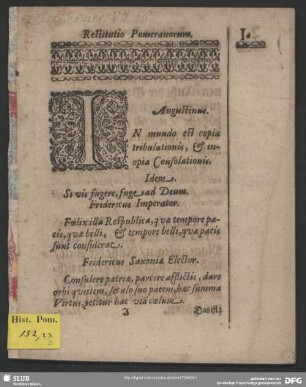 Restitutio Pomeranorum.
I.
Augustinus.
IN mundo est copia
tribulationis, & in-
opia Consolationis.
Idem.
Si vis fugere, fuge ad Deum.
Fridericus Imperator.
Fœlix illa Respublica, quæ tempore pa-
cis, quæ belli, & tempore belli, quæ pacis
sunt considerat.
Fridericus Saxoniæ Elector.
Consulere patriæ, parcere afflictis, dare
orbi quietem, seculo suo pacem, hac summa
Virtus, petitur hac via cœlum.
A
Hist. Pom.
152,23
3
SLUB